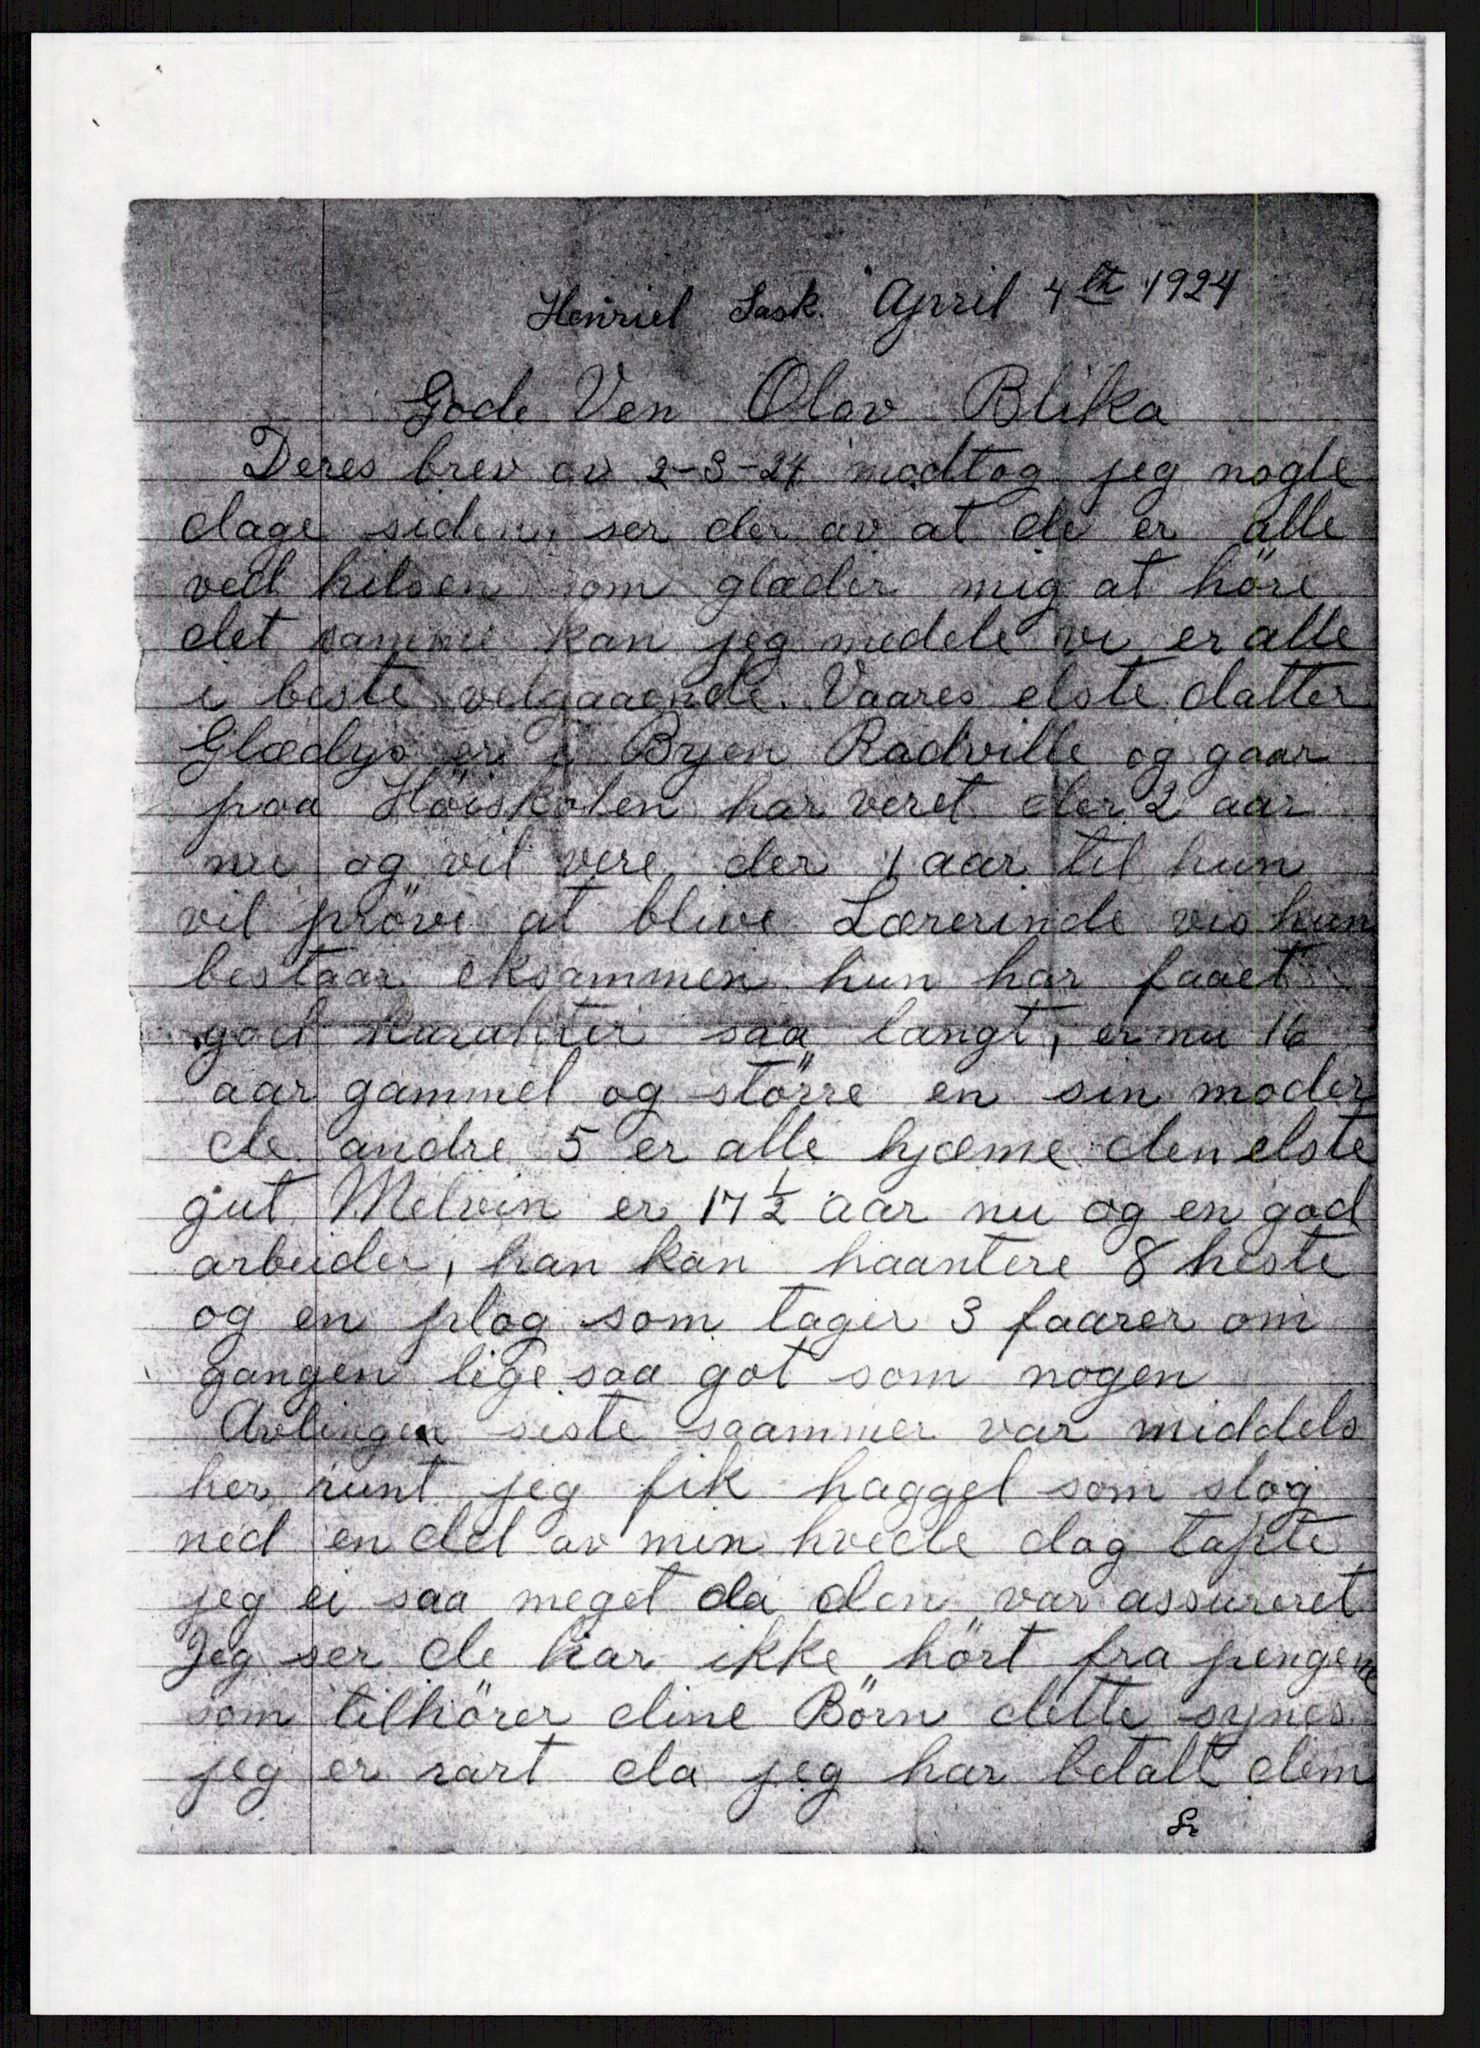 Henriel Sask. April 4th 1924
Gode Ven Olav Blika
Deres brev av 2-3-24 modtog jeg nogle
dage siden, ser der av at de er alle
ved helsen som glæder mig at höre
det samme kan jeg medele vi er alle
i beste velgaaende. Vaares elste datter
Glædys er i Byen Radville og gaar
paa Höiskolen har veret der 2 aar
nu og vil vere der 1 aar til hun
vil pröve at blive Lærerinde vis hun
bestaar eksammen hun har faaet
god karakter saa langt, er nu 16
aar gammel og större en sin moder
de andre 5 er alle hjæme den elste
gut Melvin er 17 ½ aar nu og en god
arbeider, han kan haantere 8 heste
og en plog som tager 3 faarer om
gangen lige saa got som nogen
Avlingen siste saammer var middels
her runt jeg fik haggel som slog
ned en del av min hvede dog tapte
jeg ei saa meget da den var assureret
Jeg ser de har ikke hört fra pengene
som tilhörer dine Börn dette synes
jeg er rart da jeg har betalt dem